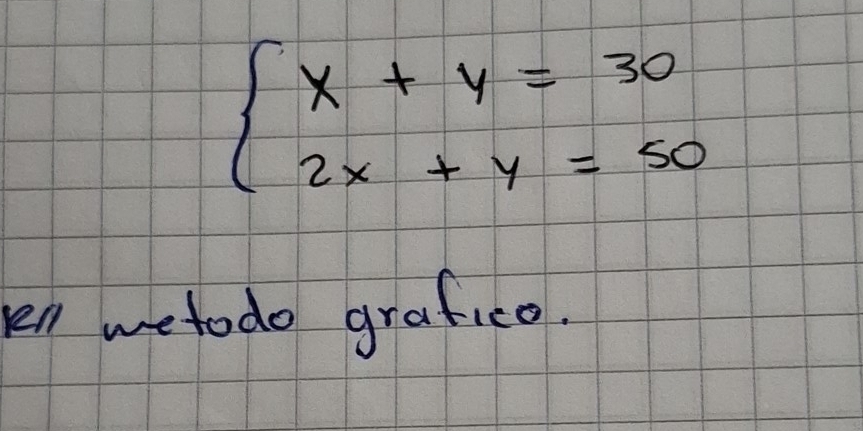 x + y = 30
2x + y = 50
en metodo grafico.